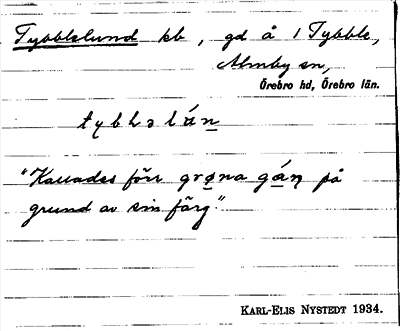 Tybblelund kb, gd å 1 Tybble,
Almby sn,
Örebro hd, Örebro län.
tybbəlán
"Kallades förr grøna gán på
grund av sin färg."
KARL-ELIS NYSTEDT 1934.